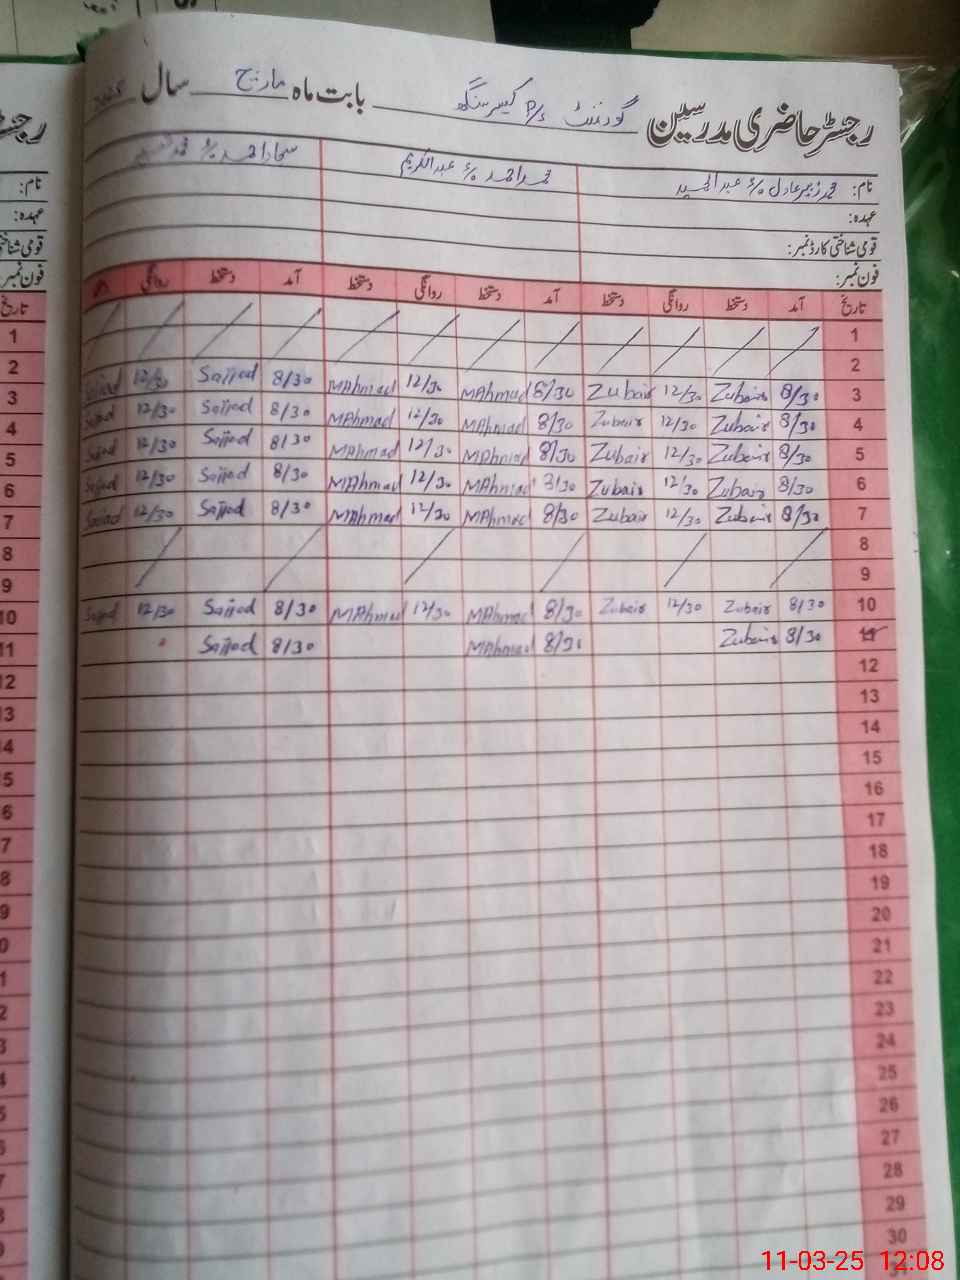 رجسٹر حاضری مدرسین گورنمنٹ P/s کیسر سنگھ بابت ماہ مارچ سال
نام: محمد زبیر عادل s/o عبدالحمید محمد احمد s/o عبدالکریم سجاد احمد s/o محمد
عہدہ:
قومی شناختی کارڈ نمبر:
فون نمبر:
تاریخ آمد دستخط روانگی دستخط آمد دستخط روانگی دستخط آمد دستخط روانگی
1
2
3 8/30 Zubair 12/30 Zubair 8/30 MAhmad 12/30 MAhmad 8/30 Sajjad 12/30 Sajjad
4 8/30 Zubair 12/30 Zubair 8/30 MAhmad 12/30 MAhmad 8/30 Sajjad 12/30 Sajjad
5 8/30 Zubair 12/30 Zubair 8/30 MAhmad 12/30 MAhmad 8/30 Sajjad 12/30 Sajjad
6 8/30 Zubair 12/30 Zubair 8/30 MAhmad 12/30 MAhmad 8/30 Sajjad 12/30 Sajjad
7 8/30 Zubair 12/30 Zubair 8/30 MAhmad 12/30 MAhmad 8/30 Sajjad 12/30 Sajjad
8
9
10 8/30 Zubair 12/30 Zubair 8/30 MAhmad 12/30 MAhmad 8/30 Sajjad 12/30 Sajjad
11 8/30 Zubair 8/30 MAhmad 8/30 Sajjad
12
13
14
15
16
17
18
19
20
21
22
23
24
25
26
27
28
29
30
11-03-25 12:08